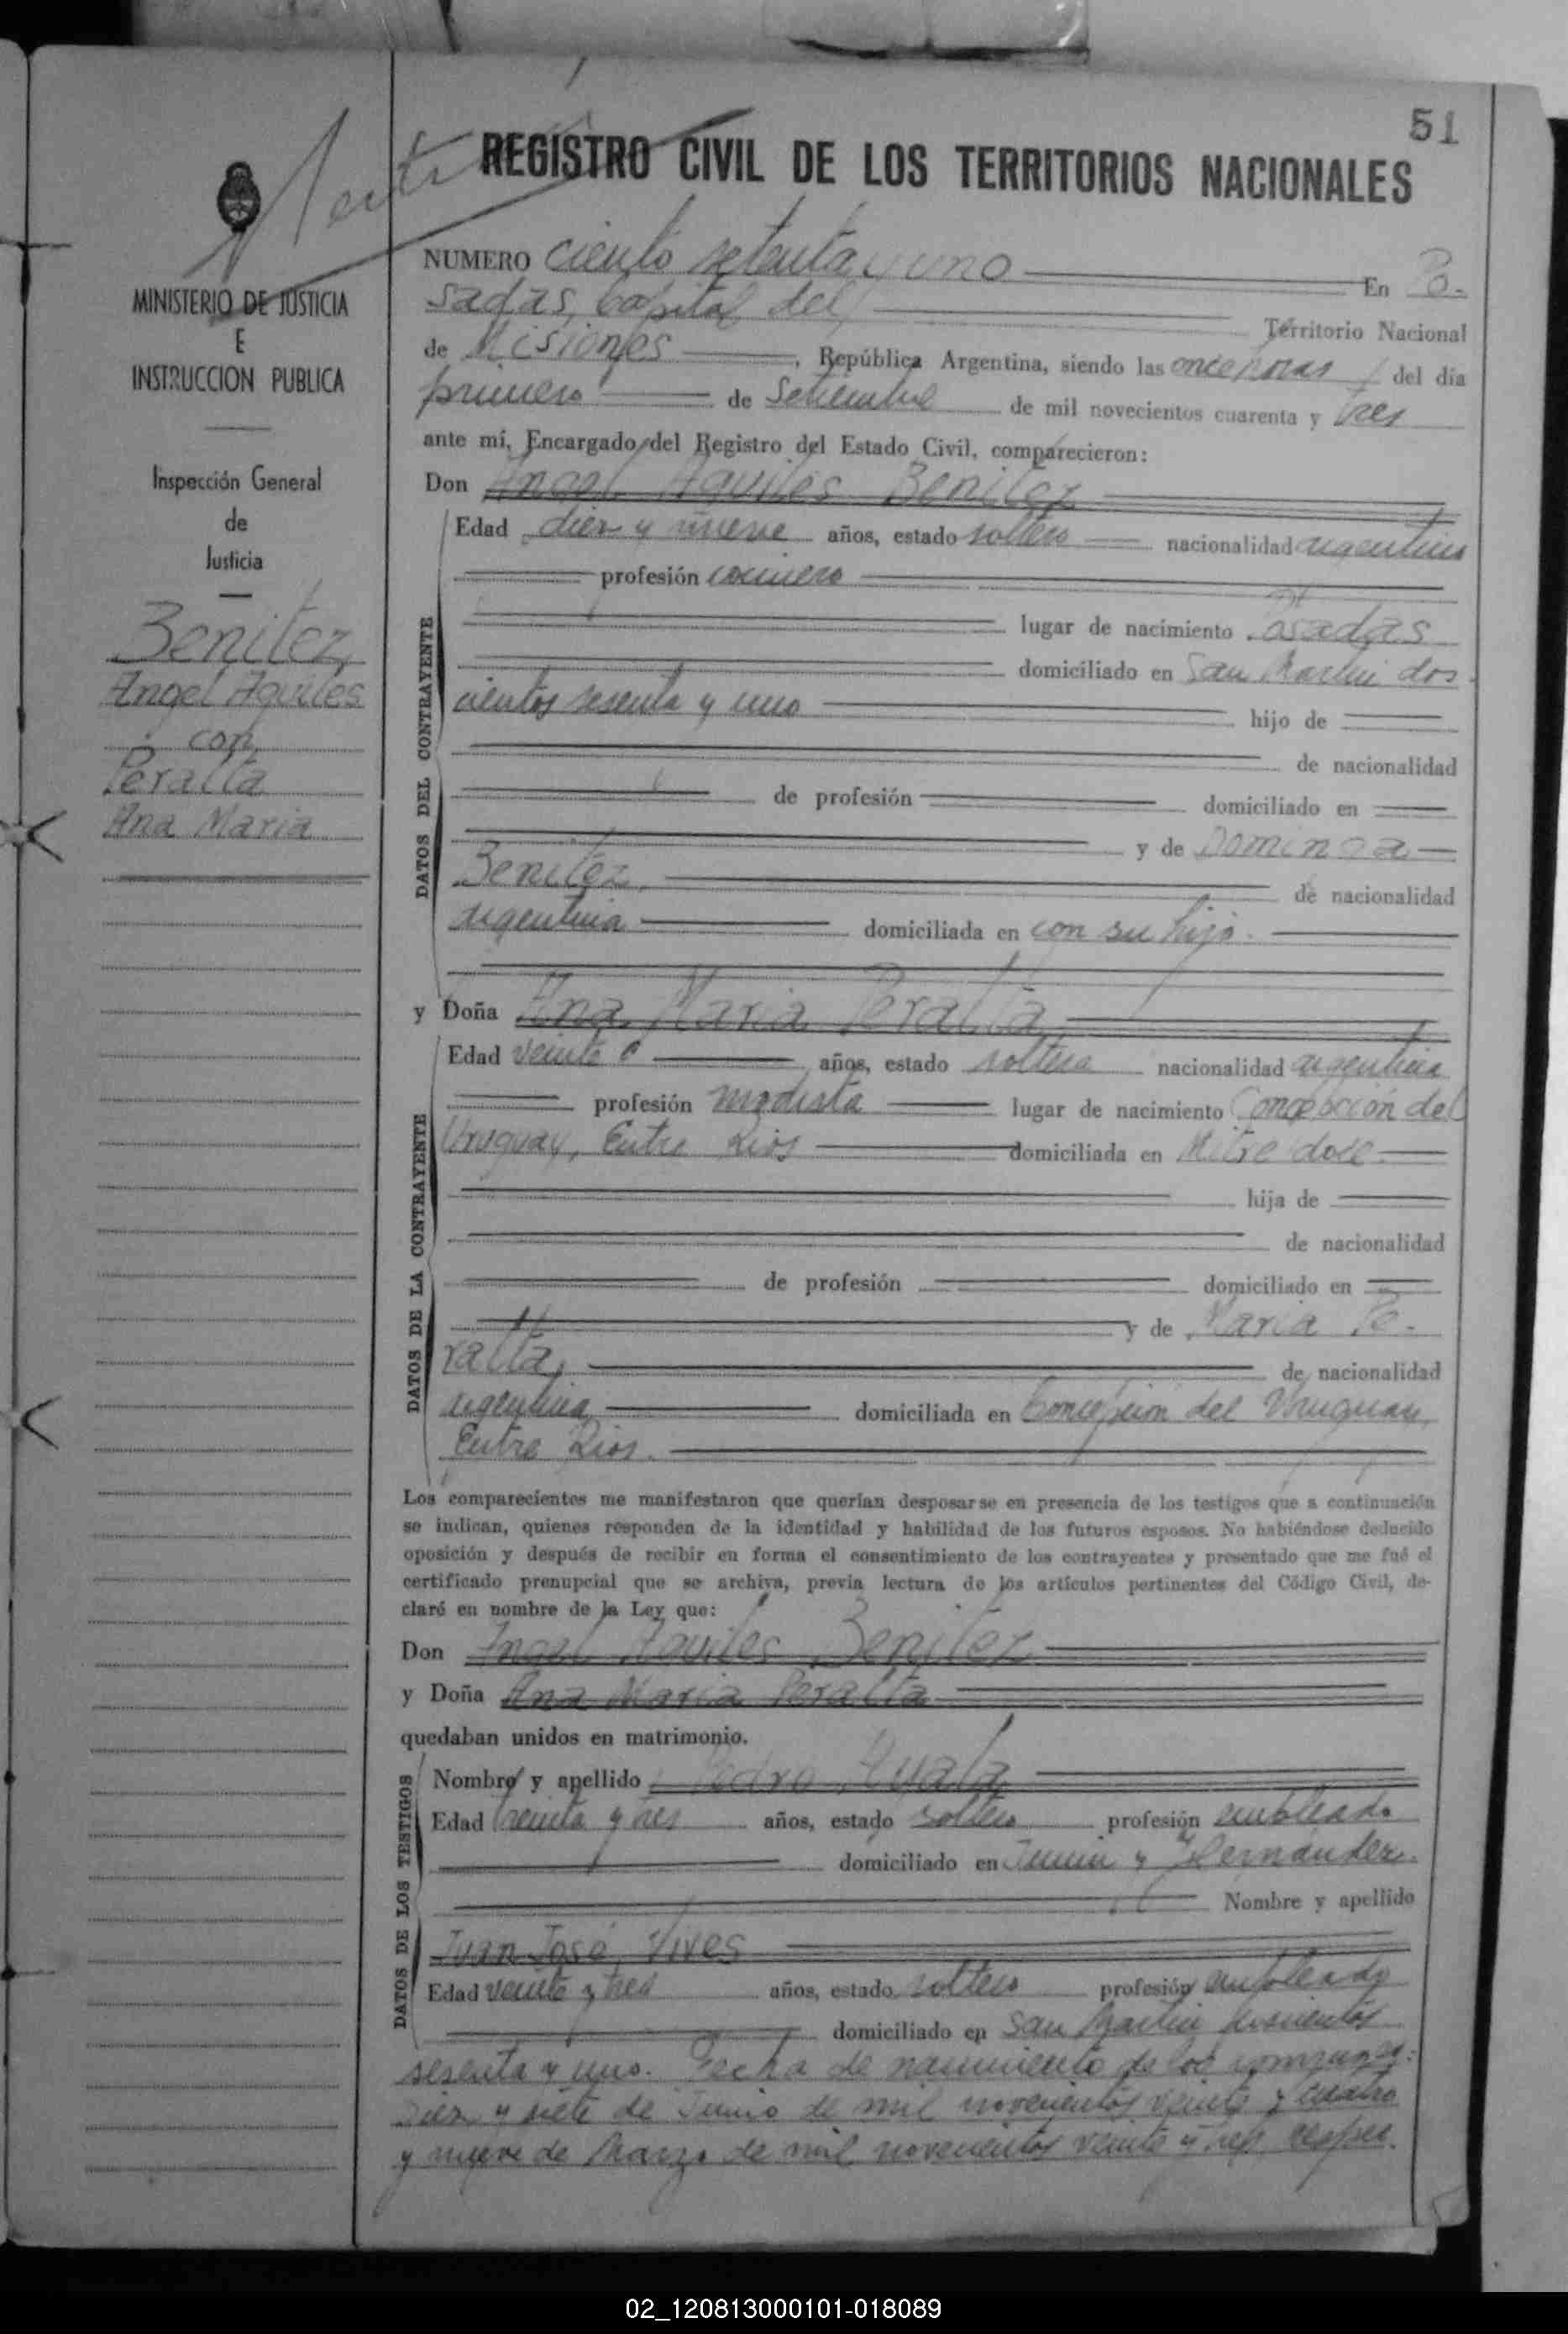 51
REGISTRO CIVIL DE LOS TERRITORIOS NACIONALES
MINISTERIO DE JUSTICIA
E
INSTRUCCION PUBLICA
Inspección General
de
Justicia
Benitez,
Angel Aquiles
con
Peralta
Ana Maria
NUMERO ciento setenta y uno En Po-
sadas, Capital del Territorio Nacional
de Misiones, República Argentina, siendo las once horas del día
primero de Setiembre de mil novecientos cuarenta y tres
ante mí, Encargado del Registro del Estado Civil, comparecieron:
Don Angel Aquiles Benitez
Edad diez y nueve años, estado soltero nacionalidad argentino
profesión
lugar de nacimiento Posadas
domiciliado en San Martin dos-
cientos sesenta y uno hijo de
de nacionalidad
de profesión domiciliado en
y de Dominga
Benitez, de nacionalidad
argentina domiciliada en con su hijo.
y Doña Ana Maria Peralta
Edad veinte años, estado soltera nacionalidad argentina
profesión modista lugar de nacimiento Concepción del
Uruguay, Entre Rios domiciliada en Mitre doce
hija de
de nacionalidad
de profesión domiciliado en
y de Maria Pe-
ralta, de nacionalidad
argentina domiciliada en Concepcion del Uruguay,
Entre Rios.
Los comparecientes me manifestaron que querían desposarse en presencia de los testigos que a continuación
se indican, quienes responden de la identidad y habilidad de los futuros esposos. No habiéndose deducido
oposición y después de recibir en forma el consentimiento de los contrayentes y presentado que me fué el
certificado prenupcial que se archiva, previa lectura de los artículos pertinentes del Código Civil, de-
claré en nombre de la Ley que:
Don Angel Aquiles Benitez
y Doña Ana Maria Peralta
quedaban unidos en matrimonio.
Nombre y apellido Pedro Ayala
Edad treinta y tres años, estado soltero profesión empleado
domiciliado en Junin y Hernandez.
Nombre y apellido
Juan José Vives
Edad veinte y tres años, estado soltero profesión empleado
domiciliado en San Martin doscientos
sesenta y uno. Fecha de nacimiento de los
Diez y siete de Junio de mil novecientos veinte y cuatro
y nueve de Marzo de mil novecientos veinte y tres respec.
DATOS DEL CONTRAYENTE
DATOS DE LA CONTRAYENTE
DATOS DE LOS TESTIGOS
02_120813000101-018089